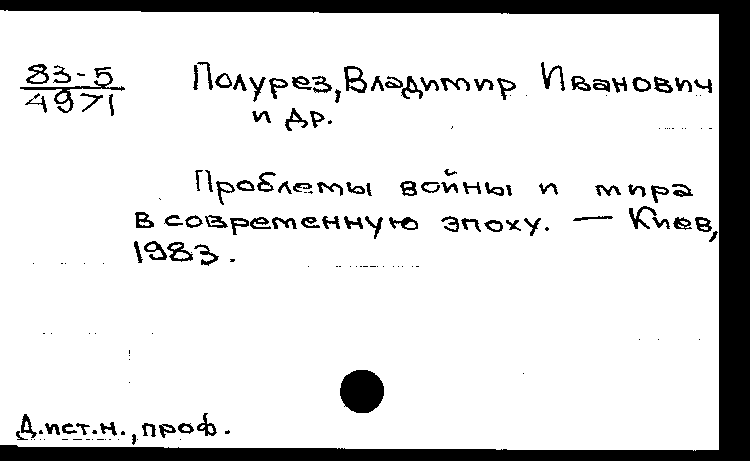 83-5
4971
Полурез, Владимир Иванович
и др.
Проблемы войны и мира
в современную эпоху. — Киев,
1983.
Д.ист.н., проф.